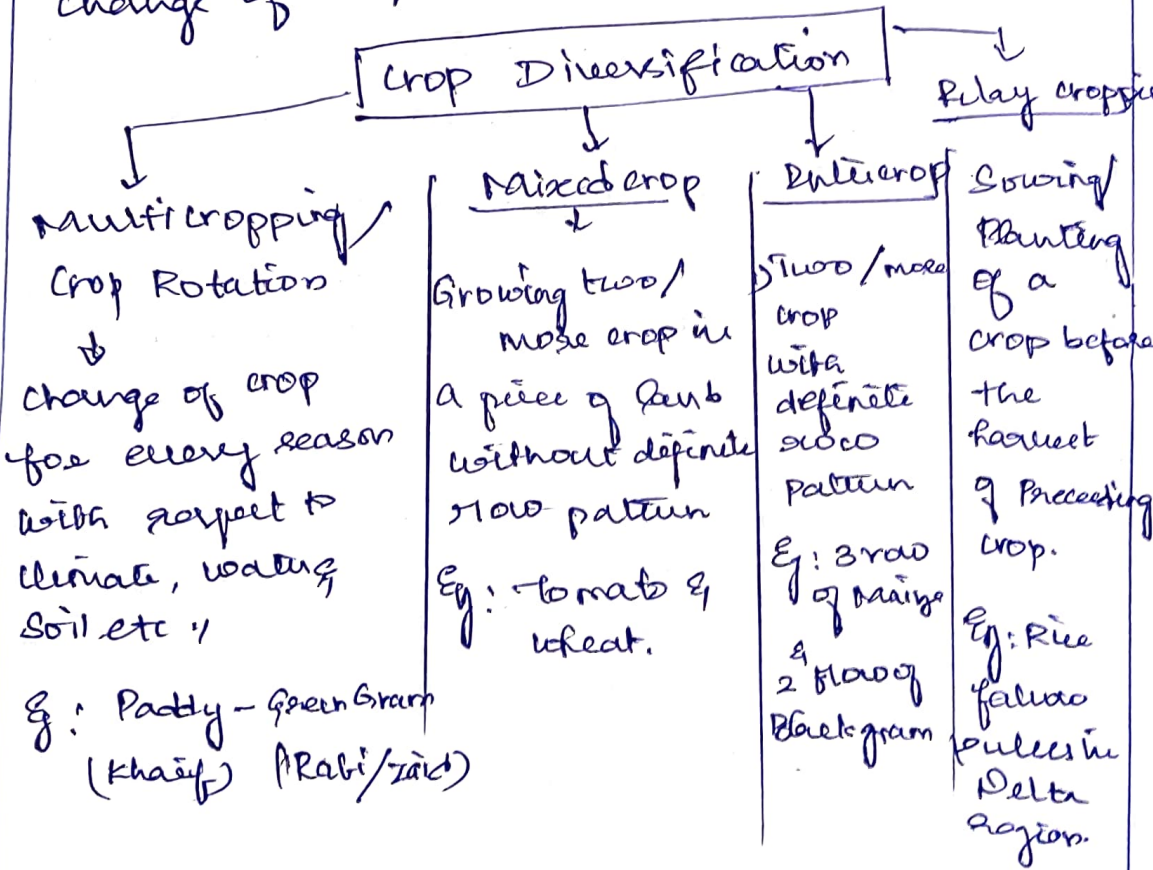 change of
Crop Diversification
Relay cropping
Multicropping/
Crop Rotation
Change of crop
for every season
with respect to
climate, water &
Soil etc
Eg: Paddy - Green Gram
(Kharif) (Rabi/Zaid)
Mixed crop
Growing two/
more crop in
a piece of land
without definite
row pattern
Eg: tomato &
wheat.
Intercrop
Two/more
crop
with
definite
row
pattern
Eg: 3 row
of Maize
&
2 row of
Blackgram
Sowing/
Planting
of a
crop before
the
harvest
of Preceeding
crop.
Eg: Rice
fallow
pulses in
Delta
Region.